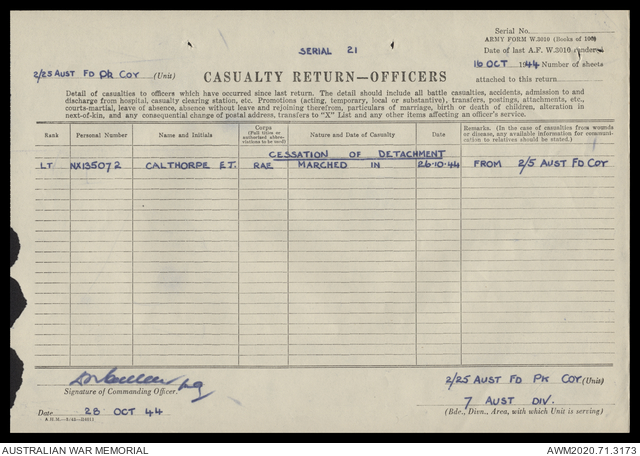 Serial No.
ARMY FORM W.3010 (Books of 100)
SERIAL 21
Date of last A.F. W.3010 rendered
16 OCT 1944 Number of sheets
2/25 AUST FD PK COY (Unit)
CASUALTY RETURN—OFFICERS
attached to this return
Detail of casualties to officers which have occurred since last return. The detail should include all battle casualties, accidents, admission to and
discharge from hospital, casualty clearing station, etc. Promotions (acting, temporary, local or substantive), transfers, postings, attachments, etc.,
courts-martial, leave of absence, absence without leave and rejoining therefrom, particulars of marriage, birth or death of children, alteration in
next-of-kin, and any consequential change of postal address, transfers to "X" List and any other items affecting an officer's service.
Rank Personal Number Name and Initials Corps (Full title or authorised abbreviations to be used) Nature and Date of Casualty Date Remarks. (In the case of casualties from wounds or disease, any available information for communication to relatives should be stated.)
CESSATION OF DETACHMENT
LT NX135072 CALTHORPE E.T. RAE MARCHED IN 26·10·44 FROM 2/5 AUST FD COY
Signature of Commanding Officer.
2/25 AUST FD PK COY (Unit)
7 AUST DIV.
Date 28 OCT 44
(Bde., Divn., Area, with which Unit is serving)
AUSTRALIAN WAR MEMORIAL
AWM2020.71.3173